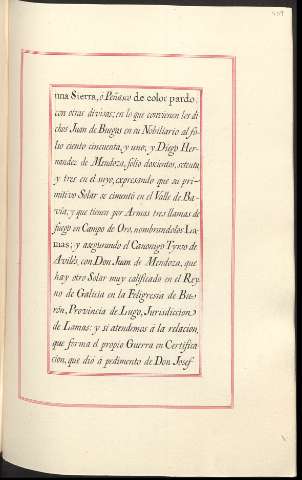 una Sierra, ó Peñasco de color pardo,
con otras divisas; en lo que convienen los di
chos Juan de Buegas en su Nobiliario al fo
lio ciento cincuenta y uno; y Diego Her-
nandez de Mendoza, folio doscientos, setenta
y tres en el suyo, expresando que su pri-
mitivo Solar se cimentó en el Valle de Ba-
via; y que tienen por Armas tres llamas de
fuego en Campo de Oro, nombrandolos La-
mas; y asegurando el Canonigo Tyrso de
Avilés, con Don Juan de Mendoza, que
hay otro Solar muy calificado en el Rey
no de Galicia en la Feligresia de
rón, Provincia de Lugo, Jurisdiccion
de Lamas: y si atendemos á la relacion,
que forma el propio Guerra en Certifica
cion, que dió á pedimento de Don Josef